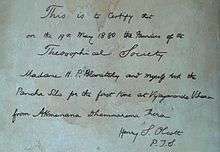 This is to Certify that
on the 19th May 1880 the Founders of the
Theosophical Society
Madame H. P. Blavatsky and myself took the
Pancha Sila for the first time at Vijayananda Vihara
from Akmeemana Dhammarama Thera
Henry S. Olcott
P.T.S